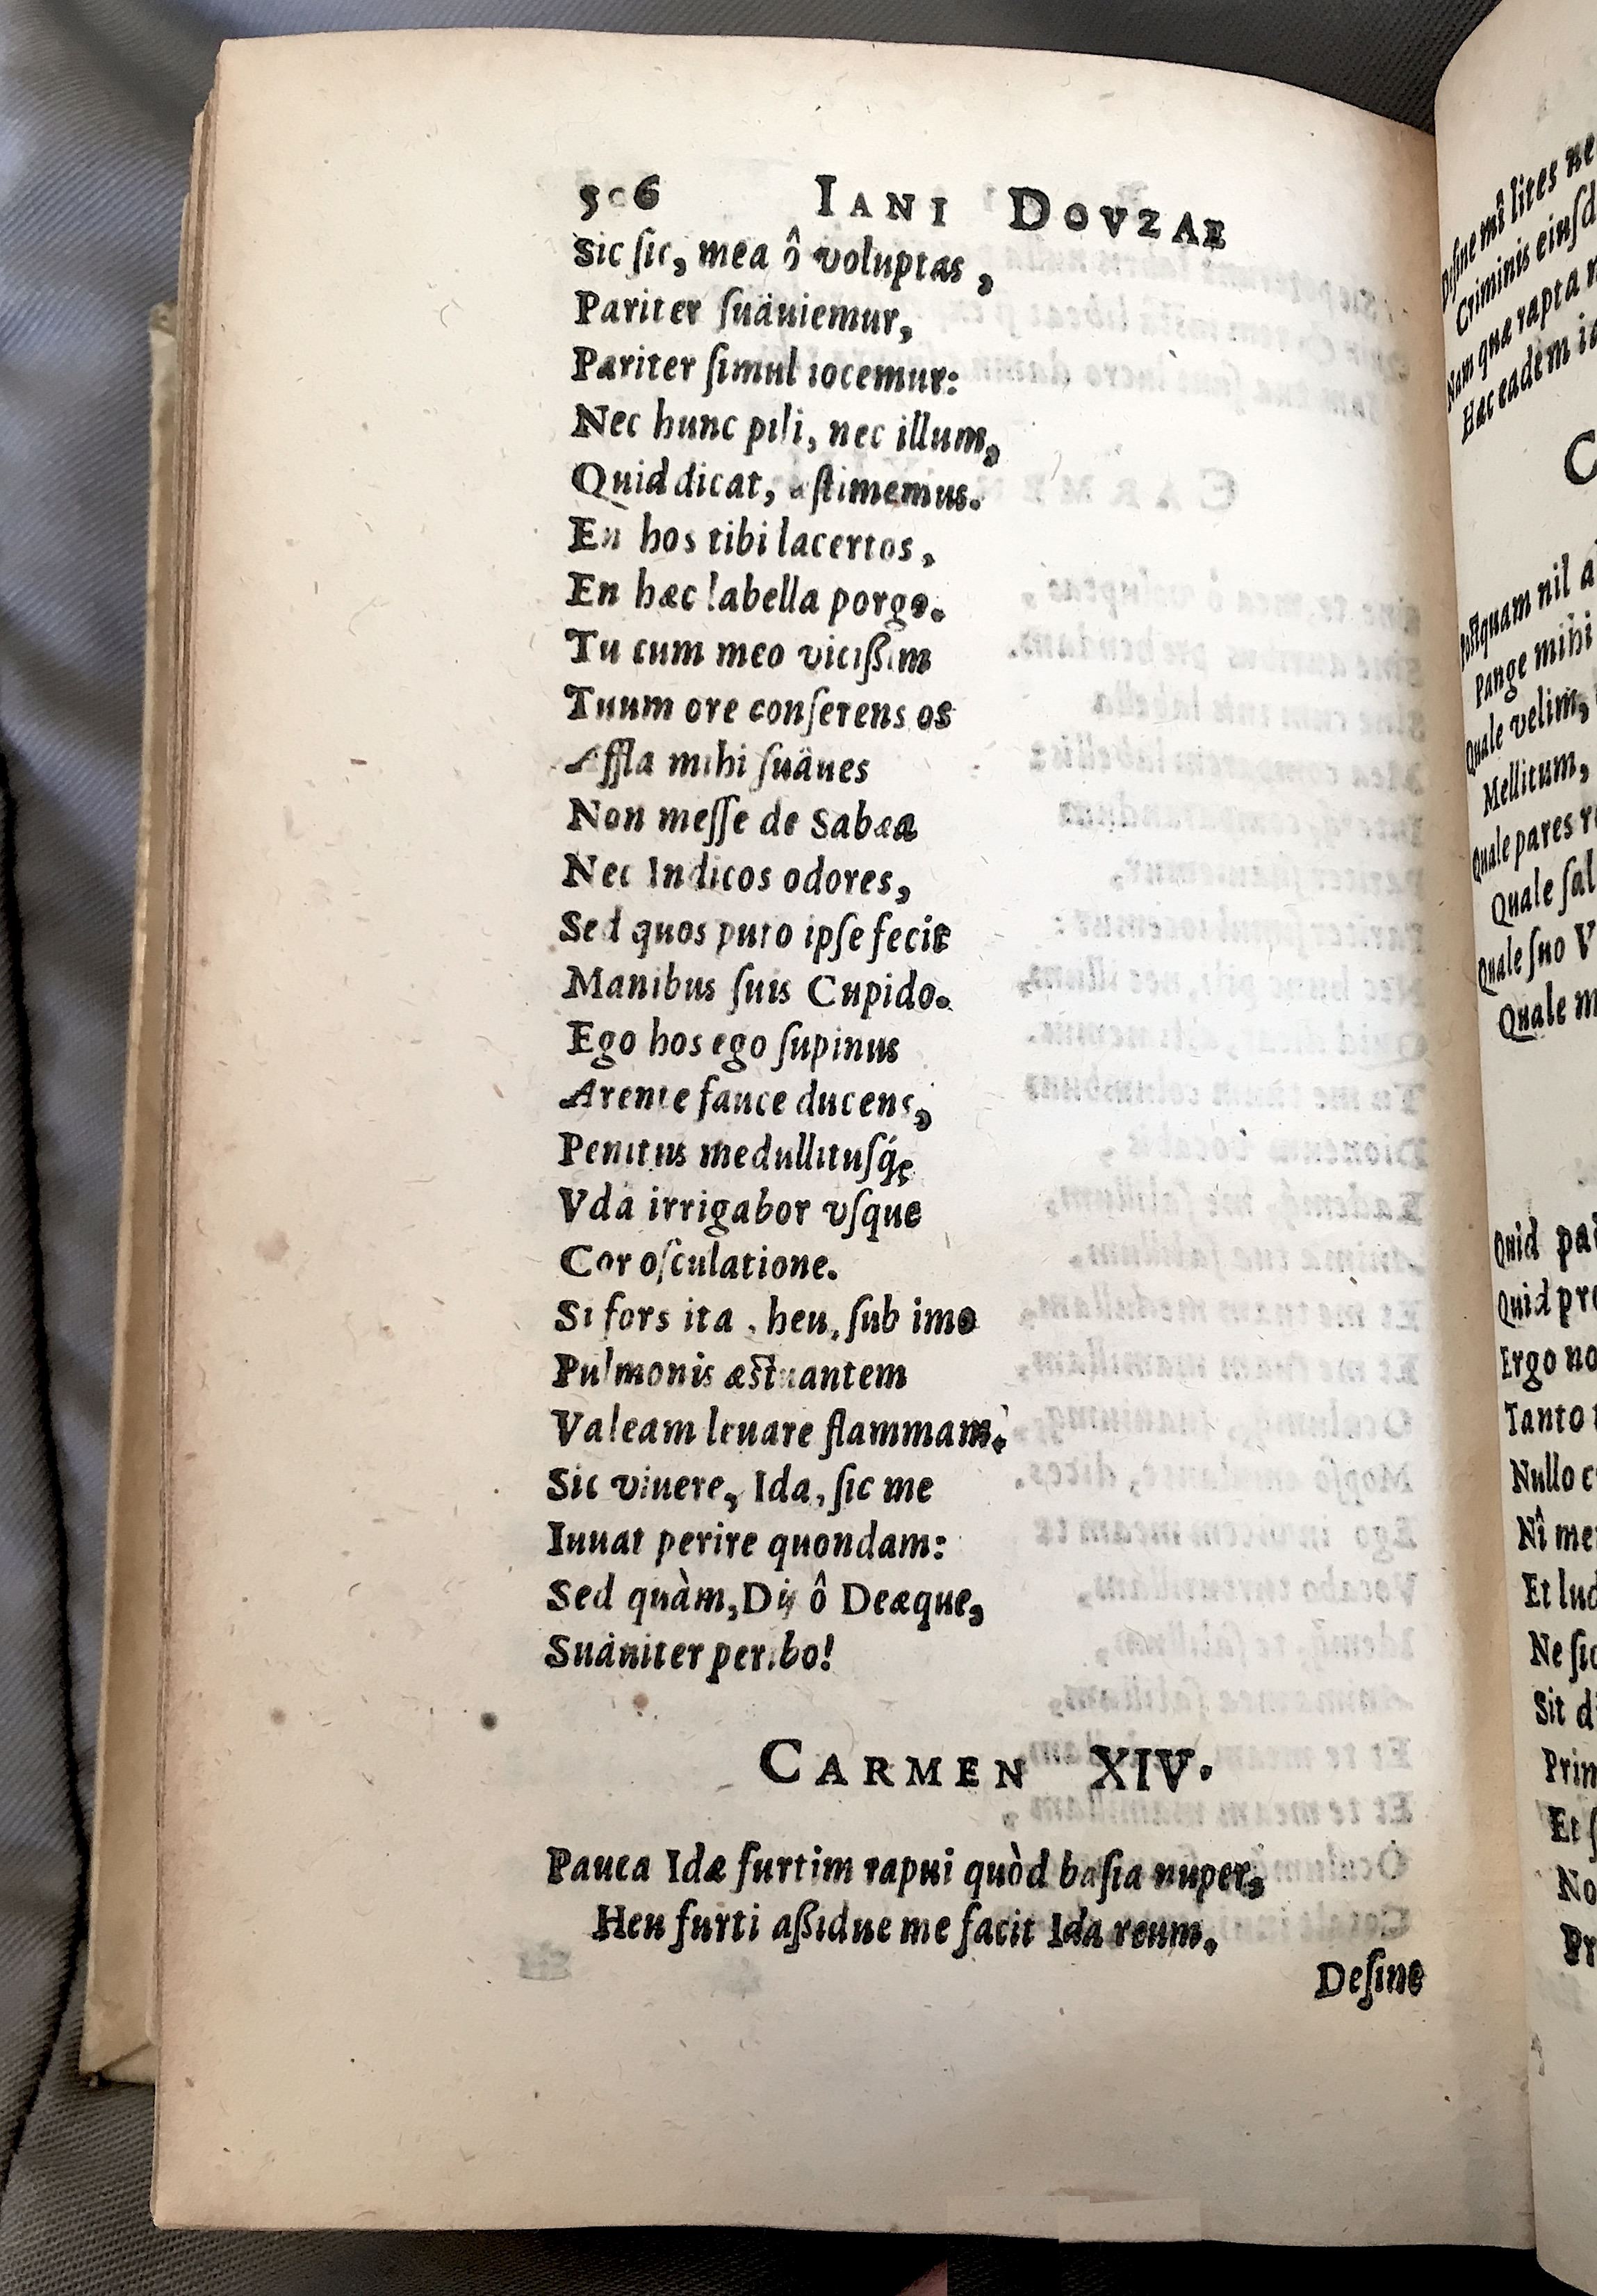 506 IANI DOVZAE
Sic ſic, mea ô voluptas,
Pariter ſuäuiemur,
Pariter ſimul iocemur:
Nec hunc pili, nec illum,
Quid dicat, æſtimemus.
En hos tibi lacertos,
En hæc labella porgo.
Tu cum meo vicißim
Tuum ore conſerens os
Affla mihi ſuäues
Non meſſe de Sabæa
Nec Indicos odores,
Sed quos puto ipſe fecit
Manibus ſuis Cupido.
Ego hos ego ſupinus
Arente fauce ducens,
Penitus medullituſq́;
Vda irrigabor vſque
Cor oſculatione.
Si fors ita, heu, ſub imo
Pulmonis æstuantem
Valeam leuare flammam.
Sic viuere, Ida, ſic me
Iuuat perire quondam:
Sed quàm, Dij ô Deæque,
Suäuiter peribo!
CARMEN XIV.
Pauca Idæ furtim rapui quòd baſia nuper,
Heu furti aßidue me facit Ida reum.
Deſine
Deſine mî lites ne
Criminis eiuſd
Nam quæ rapta
Hæc eadem
C
Poſtquam nil a
Pange mihi
Quale velim,
Mellitum,
Quale pares
Quale ſal
Quale ſuo V
Quale m
Quid pa
Quid pr
Ergo no
Tanto
Nullo c
Nî me
Et lud
Ne ſic
Sit d
Prim
Et ſ
No
Pr